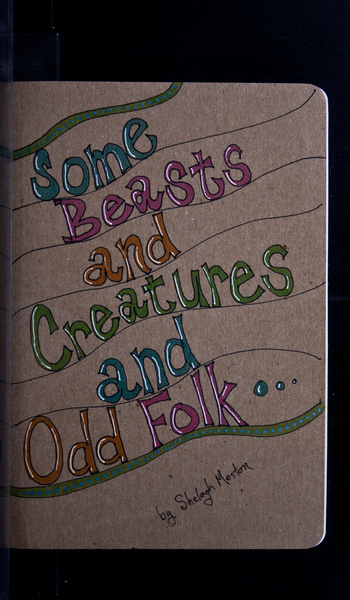 Some
Beasts
and
Creatures
and
Odd Folk...
by Shelagh Meston